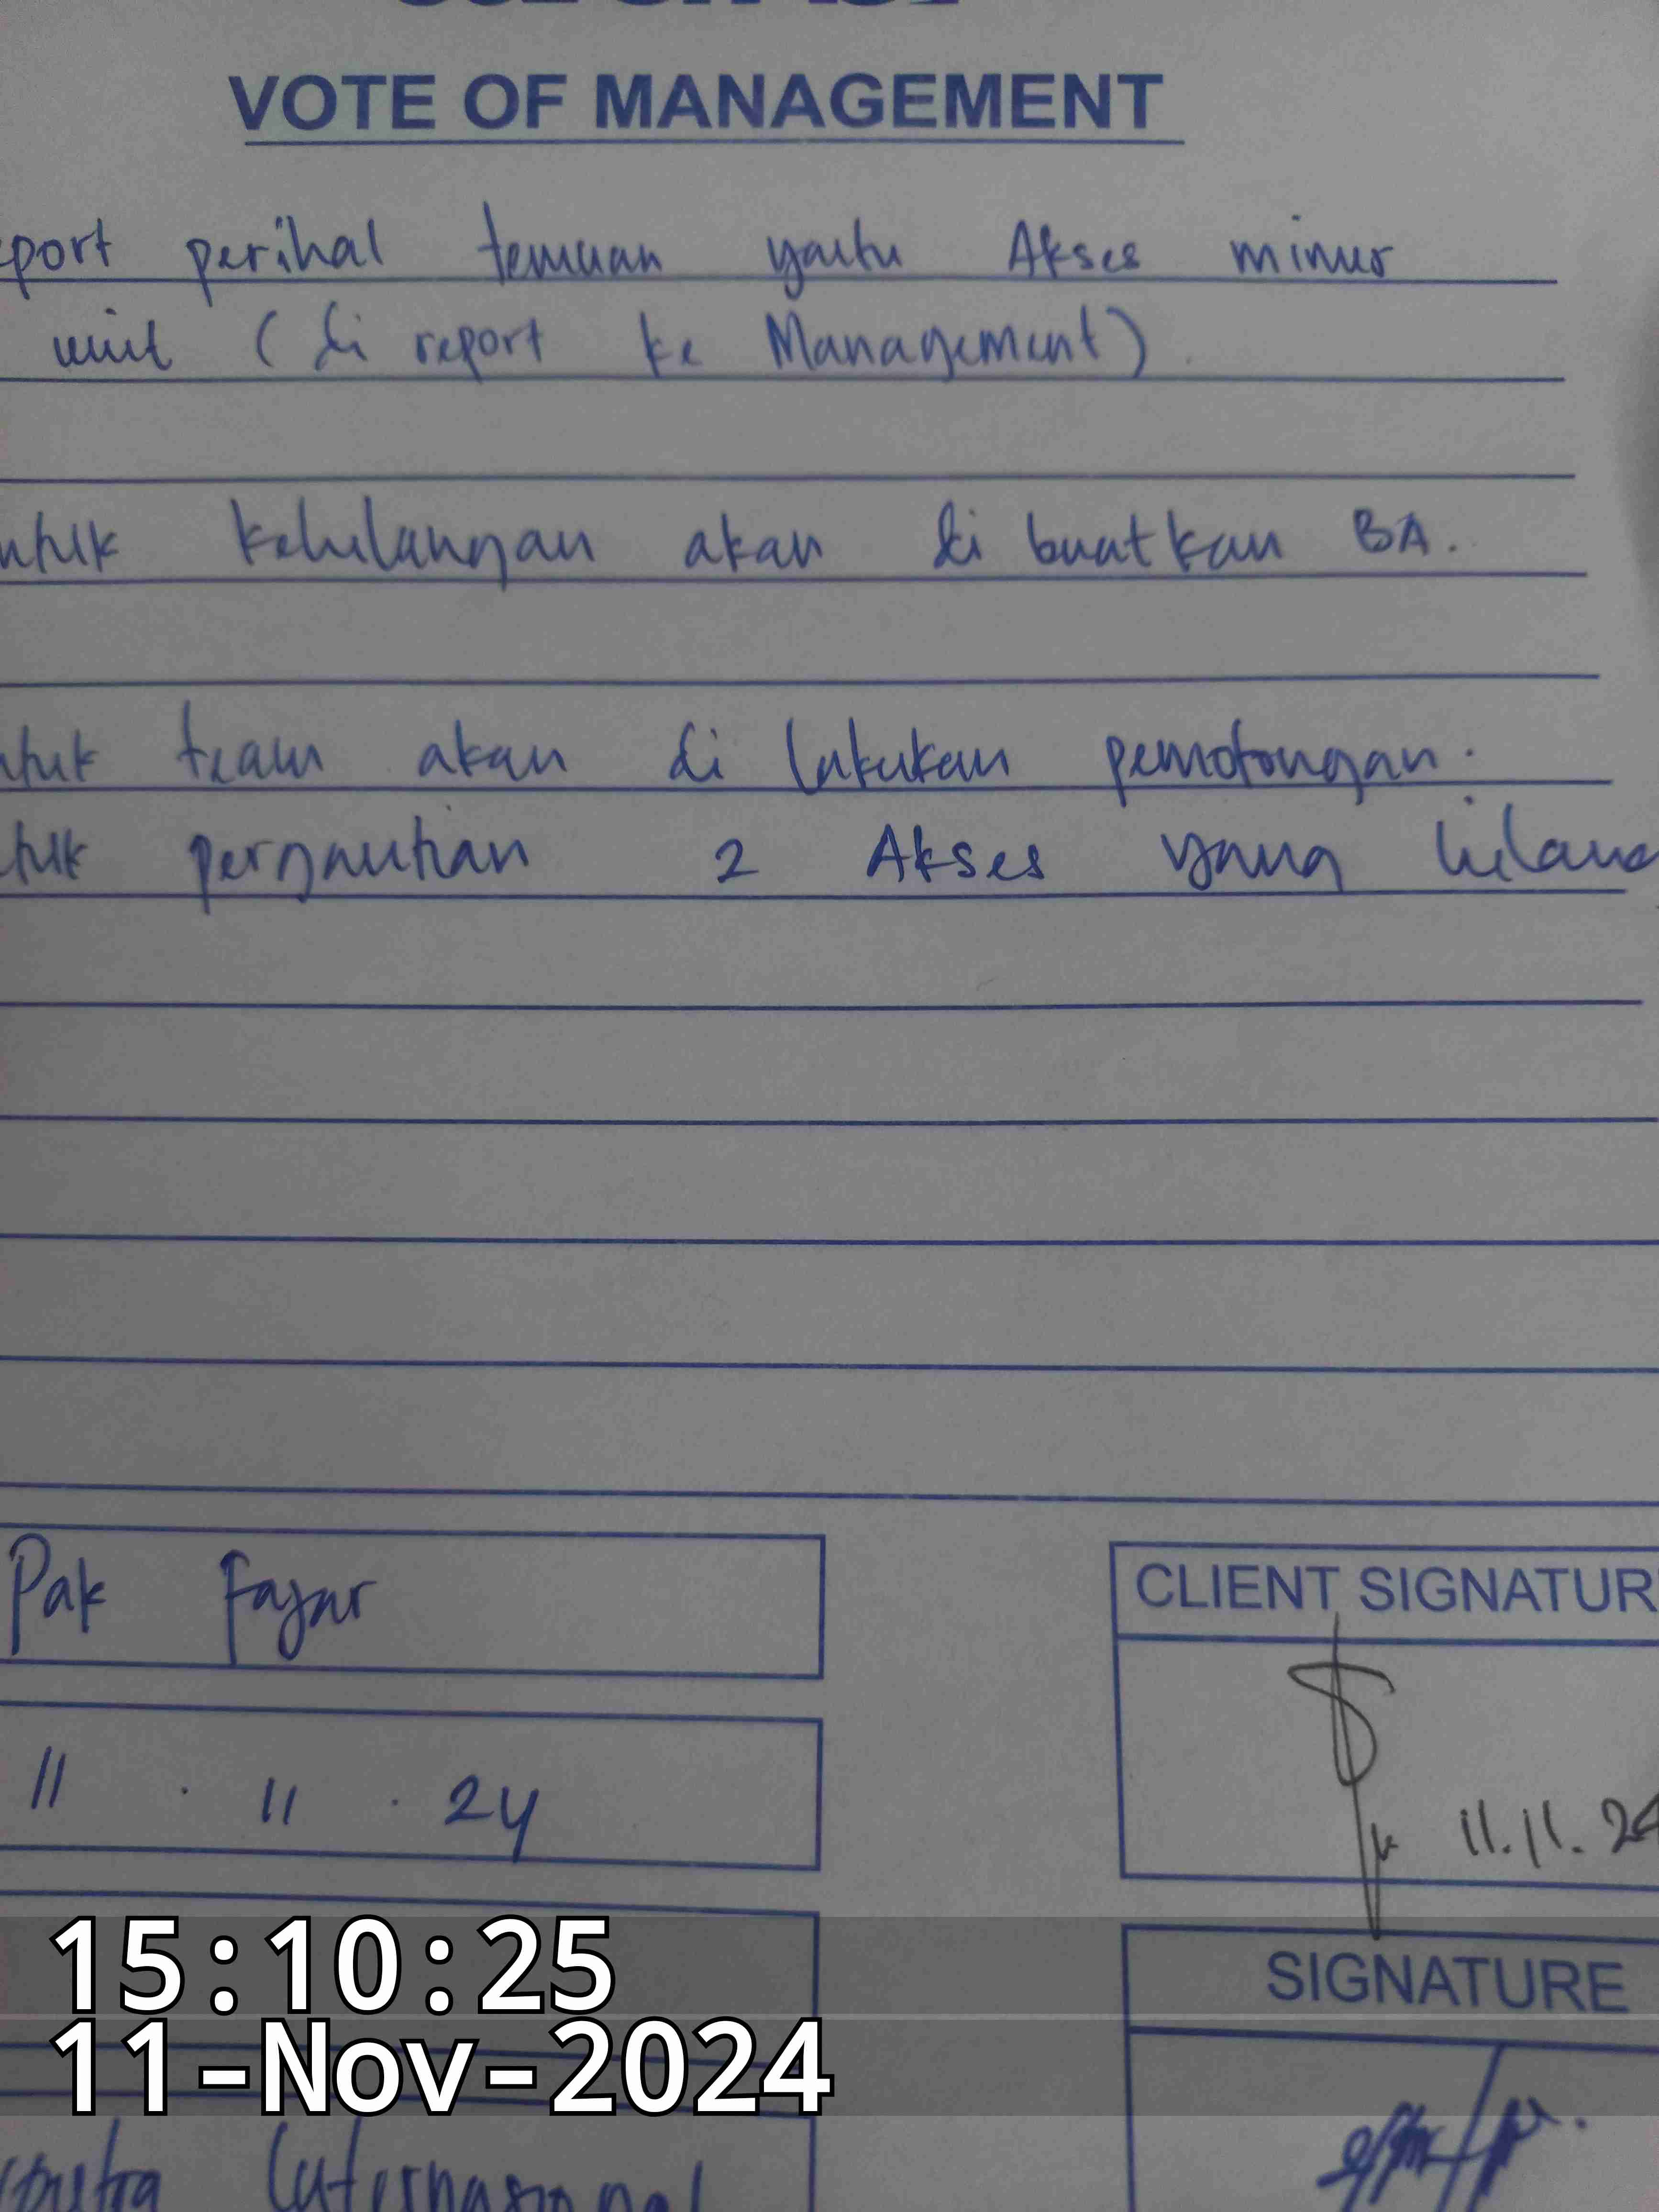 VOTE OF MANAGEMENT
port perihal temuan yaitu Akses minus
unit (di report ke Management).
ntuk kehilangan akan di buatkan BA.
ntuk team akan di lakukan pemotongan.
tuk pergantian 2 Akses yang hilang
Pak Fajar
CLIENT SIGNATUR
11 . 11 . 24
11.11.24
SIGNATURE
15:10:25
11-Nov-2024
Internasional